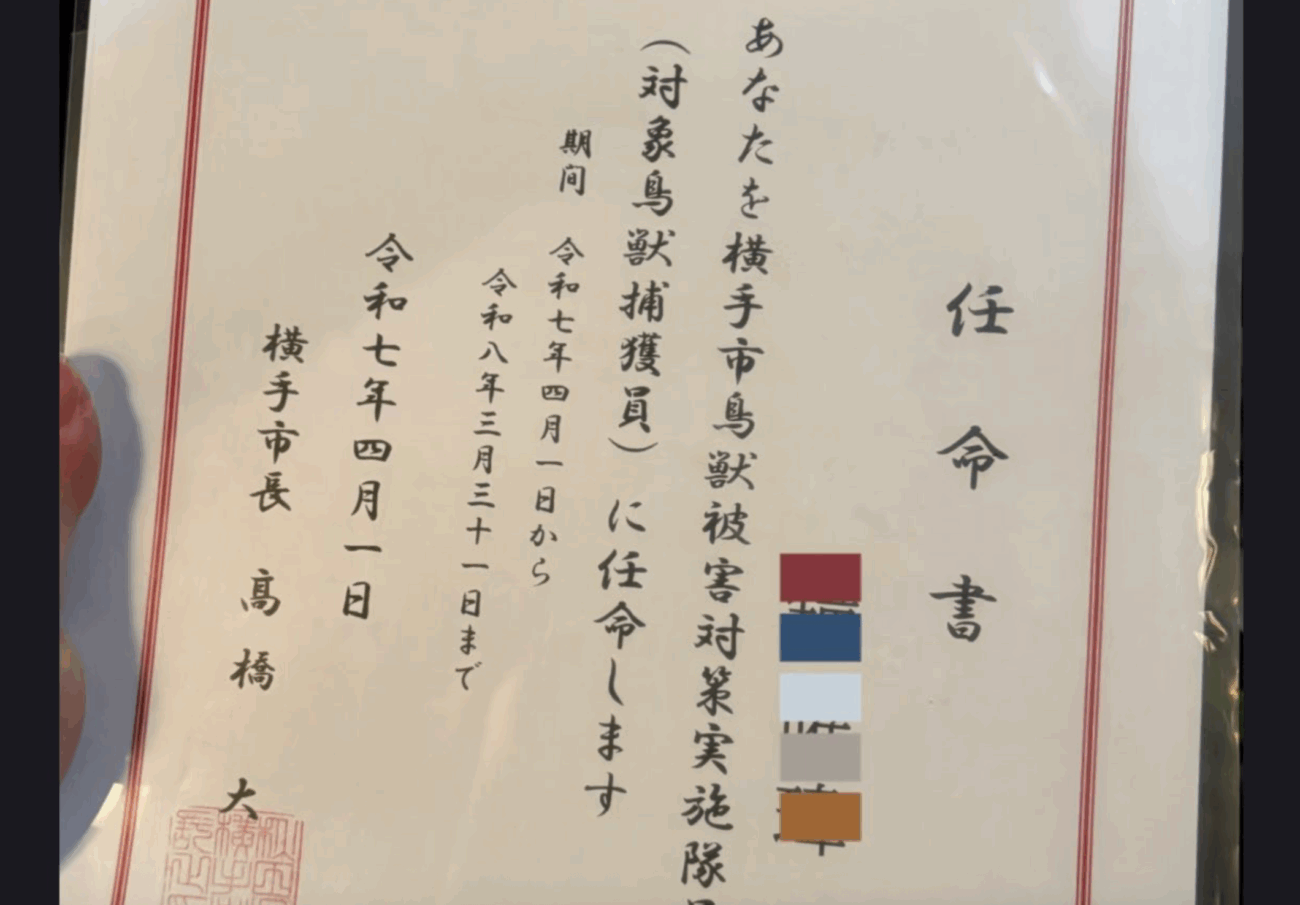 任命書
あなたを横手市鳥獣被害対策実施隊
（対象鳥獣捕獲員）に任命します
期間 令和七年四月一日から
令和八年三月三十一日まで
令和七年四月一日
横手市長 髙橋 大